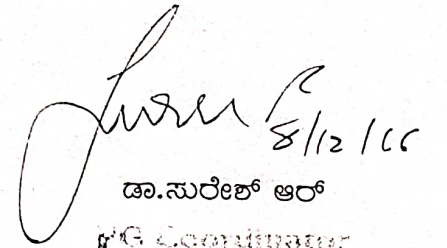 8/12/16
ಡಾ.ಸುರೇಶ್ ಆರ್
PG Coordinator